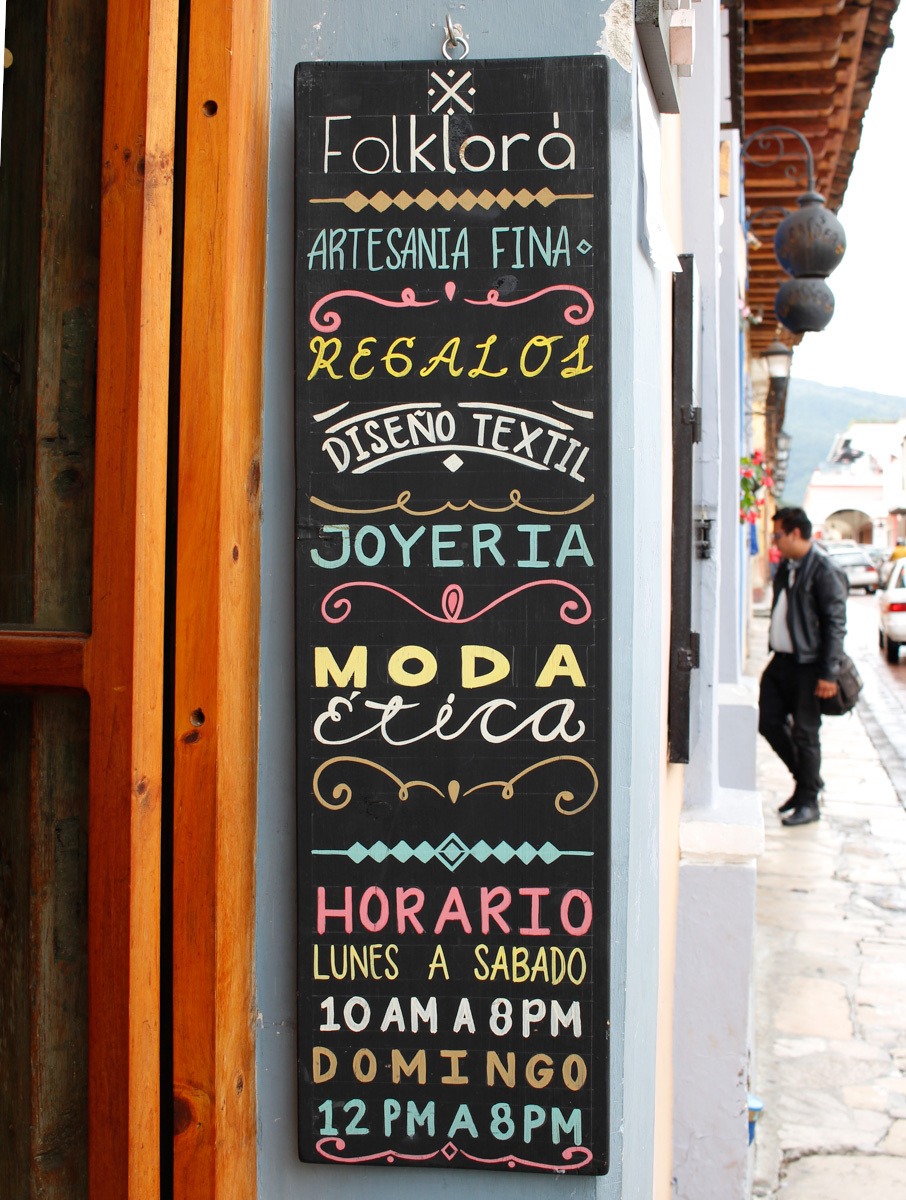 Folklorà
ARTESANIA FINA
REGALOS
DISEÑO TEXTIL
JOYERIA
MODA
Ética
HORARIO
LUNES A SABADO
10 AM A 8PM
DOMINGO
12 PM A 8PM